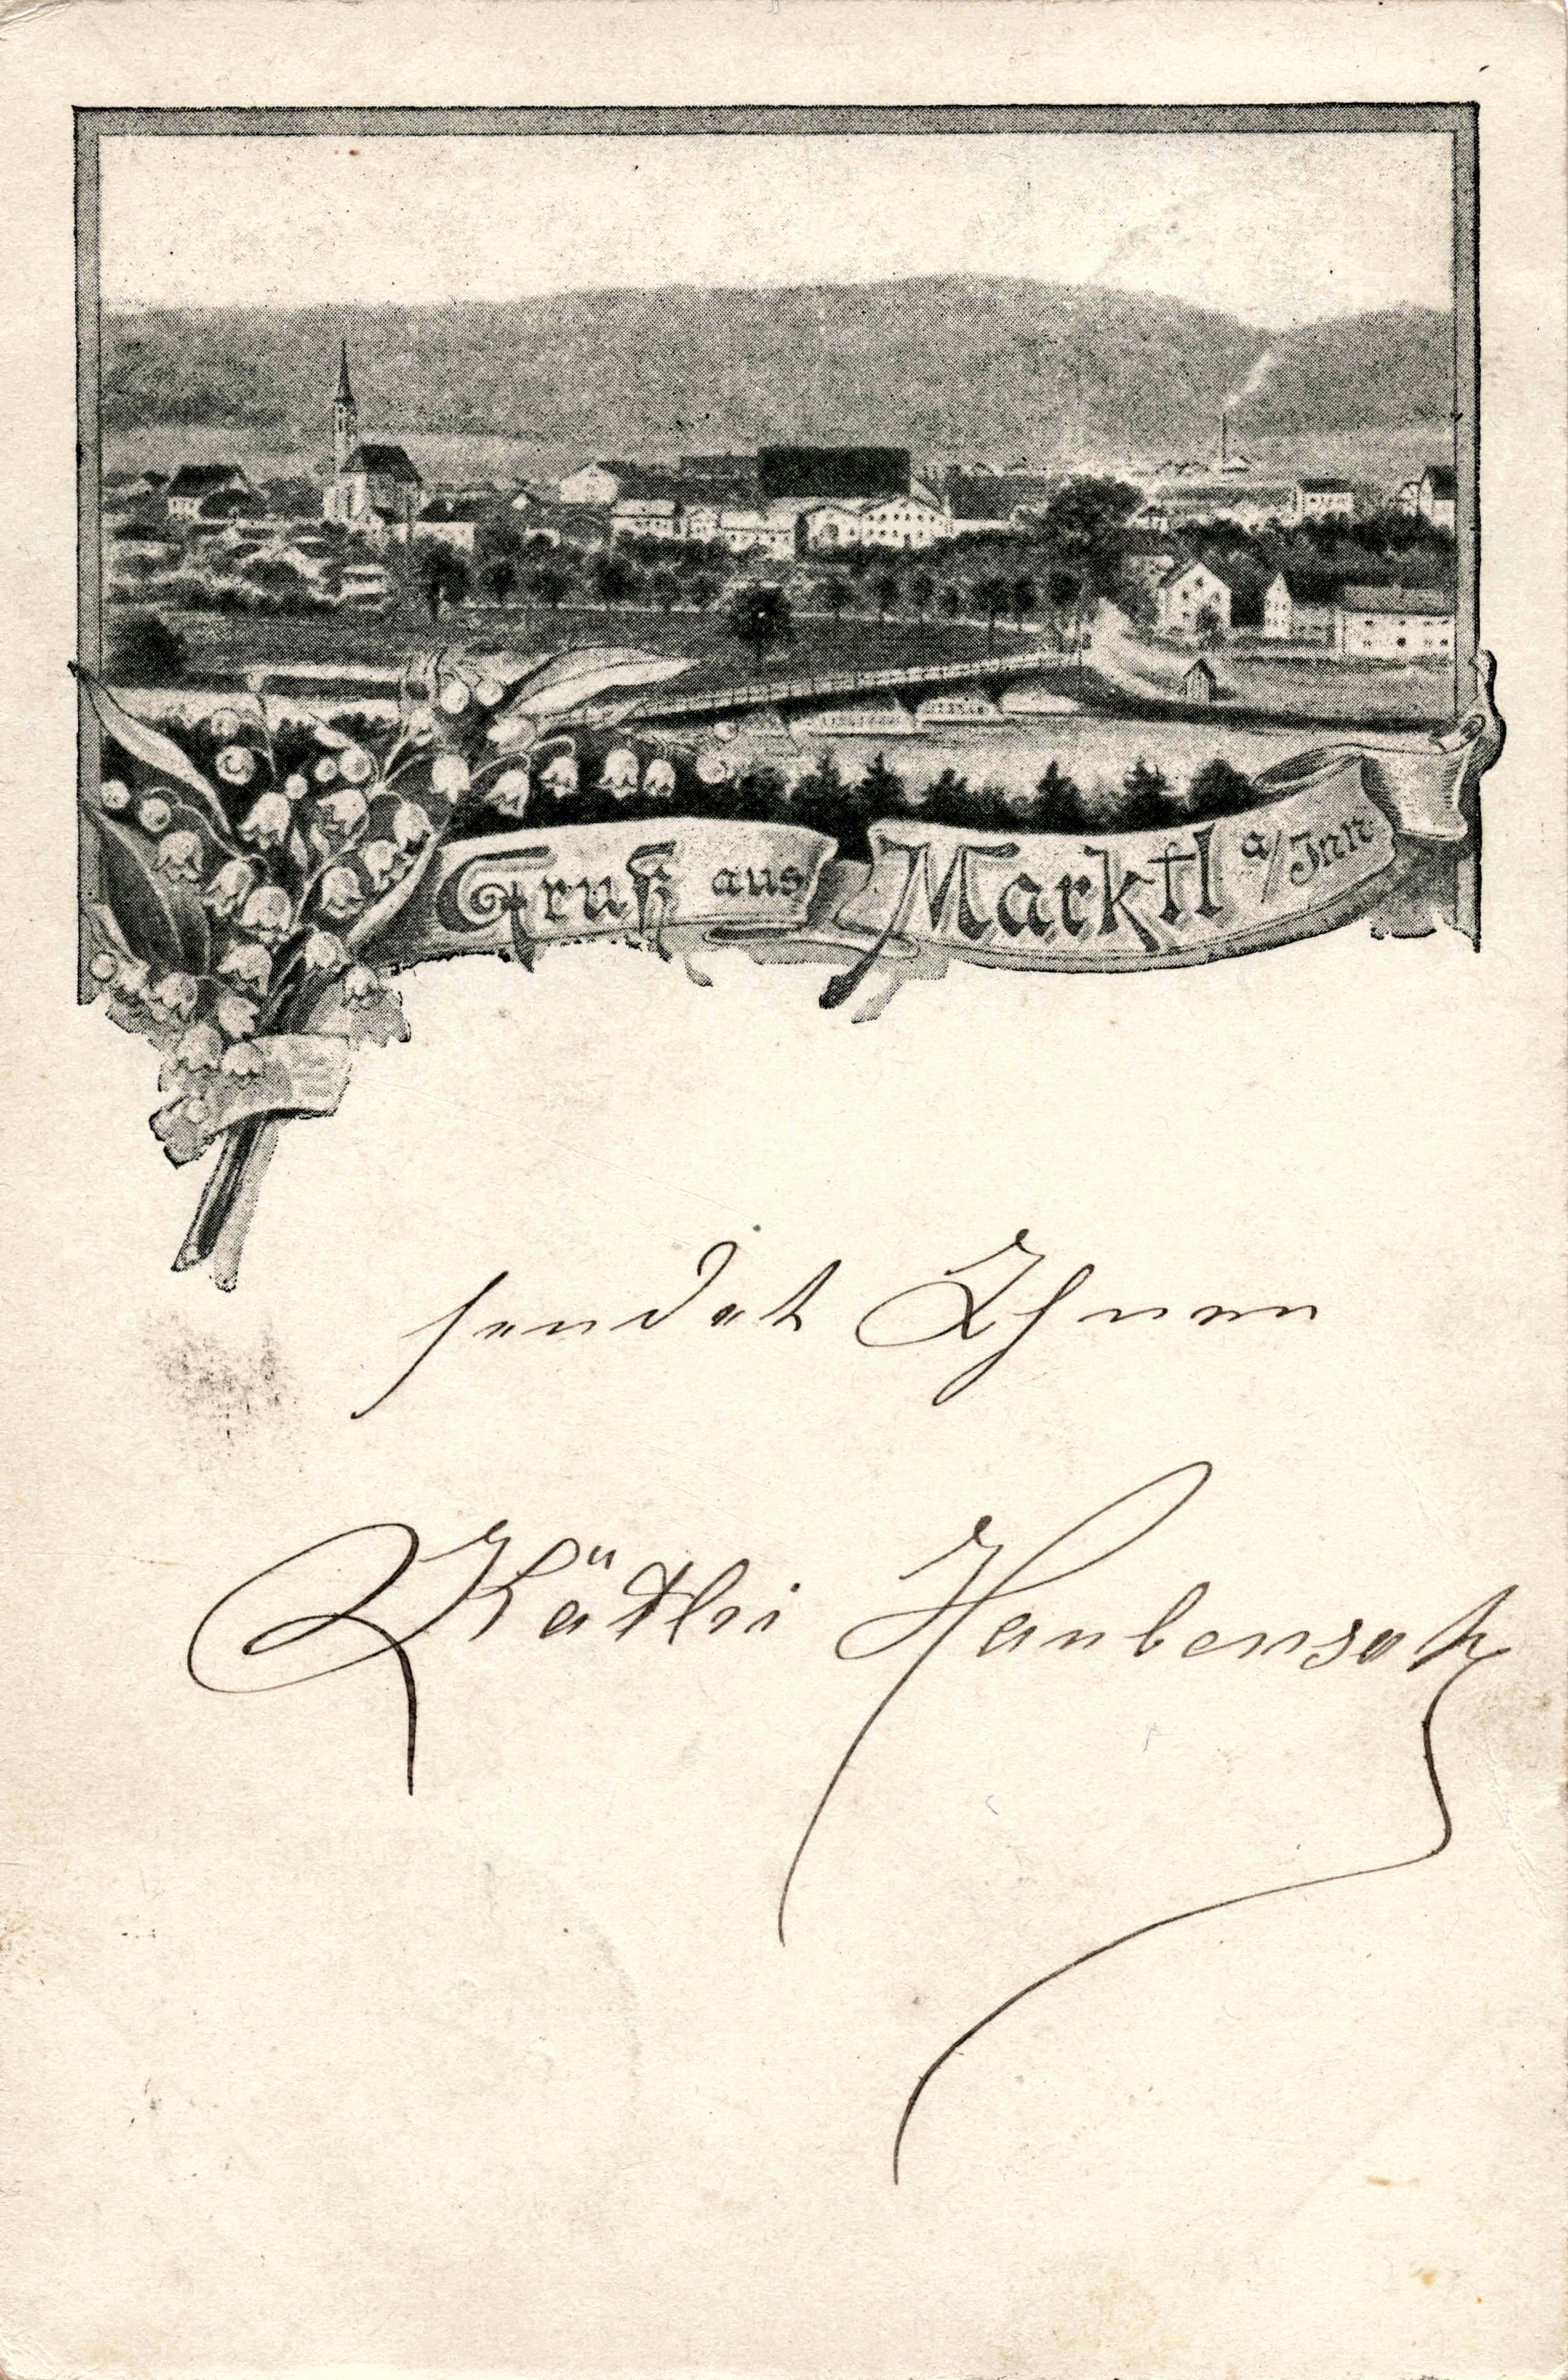 Gruß aus Marktl a/Inn
sendet Ihnen
Käthi Haubensak